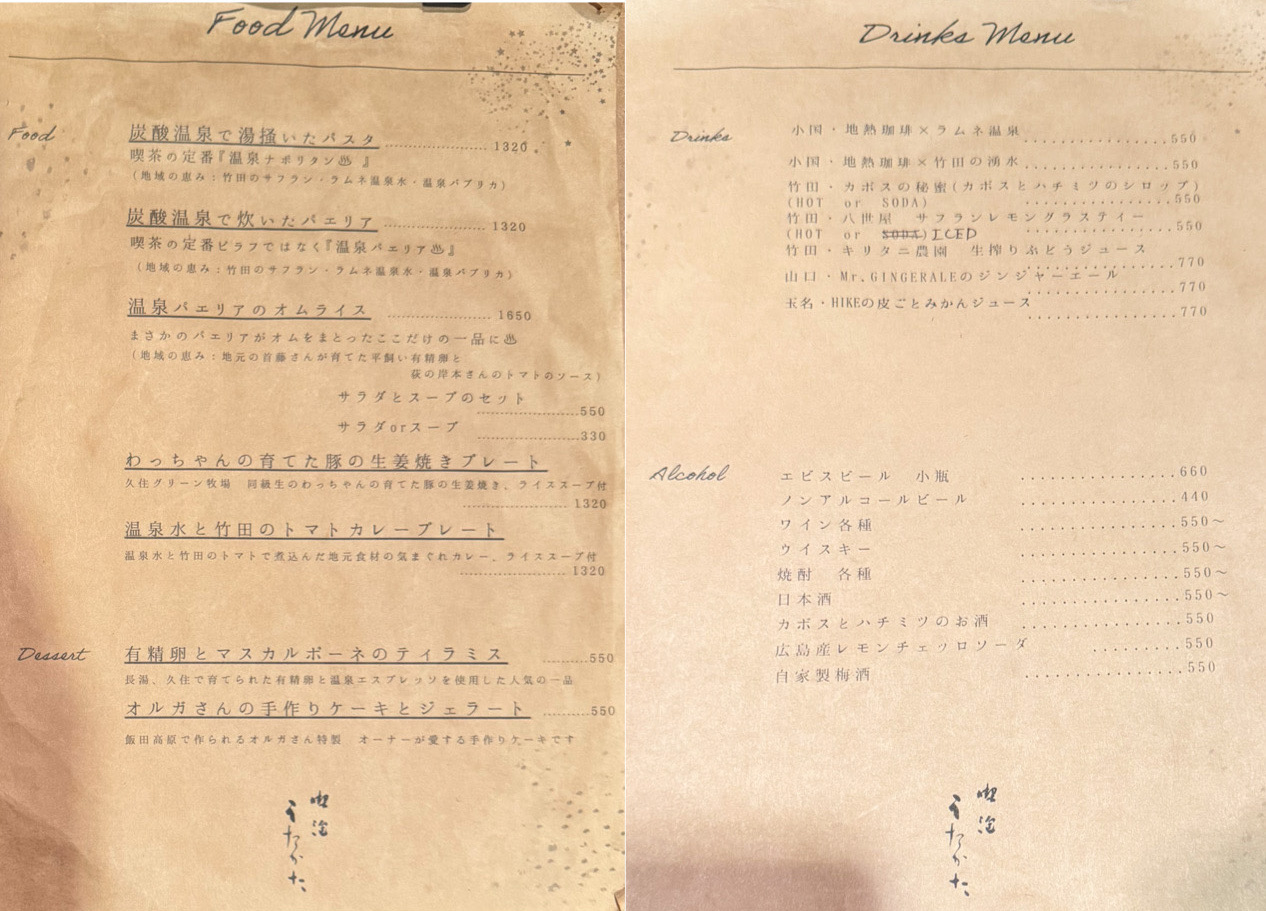 Food Menu
Food
炭酸温泉で湯掻いたパスタ ……………… 1320
喫茶の定番『温泉ナポリタン♨ 』
(地域の恵み：竹田のサフラン・ラムネ温泉水・温泉パプリカ)
炭酸温泉で炊いたパエリア ……………… 1320
喫茶の定番ピラフではなく『温泉パエリア♨』
(地域の恵み：竹田のサフラン・ラムネ温泉水・温泉パプリカ)
温泉パエリアのオムライス ……………… 1650
まさかのパエリアがオムをまとったここだけの一品に♨
(地域の恵み：地元の首藤さんが育てた平飼い有精卵と
荻の岸本さんのトマトのソース)
サラダとスープのセット
……………550
サラダorスープ
……………330
わっちゃんの育てた豚の生姜焼きプレート
久住グリーン牧場　同級生のわっちゃんの育てた豚の生姜焼き、ライススープ付
……………… 1320
温泉水と竹田のトマトカレープレート
温泉水と竹田のトマトで煮込んだ地元食材の気まぐれカレー、ライススープ付
……………… 1320
Dessert
有精卵とマスカルポーネのティラミス …………550
長湯、久住で育てられた有精卵と温泉エスプレッソを使用した人気の一品
オルガさんの手作りケーキとジェラート …………550
飯田高原で作られるオルガさん特製　オーナーが愛する手作りケーキです
喫茶
うたかた
Drinks Menu
Drinks
小国・地熱珈琲×ラムネ温泉 ................550
小国・地熱珈琲×竹田の湧水 ................550
竹田・カボスの秘蜜(カボスとハチミツのシロップ)
(HOT or SODA) ................550
竹田・八世屋　サフランレモングラスティー
(HOT or SODA)ICED ................550
竹田・キリタニ農園　生搾りぶどうジュース
................770
山口・Mr､GINGERALEのジンジャーエール
................770
玉名・HIKEの皮ごとみかんジュース
................770
Alcohol
エビスビール　小瓶 ................660
ノンアルコールビール ................440
ワイン各種 ................550～
ウイスキー ................550～
焼酎　各種 ................550～
日本酒 ................550～
カボスとハチミツのお酒 ................550
広島産レモンチェッロソーダ ..........550
自家製梅酒 ................550
喫茶
うたかた